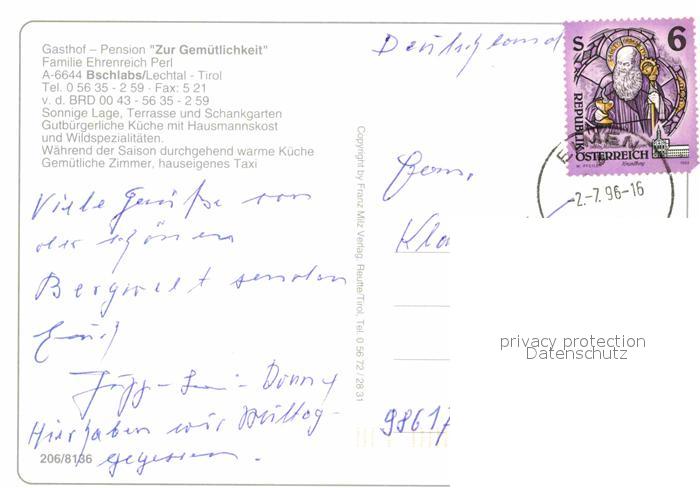 Gasthof – Pension "Zur Gemütlichkeit"
Familie Ehrenreich Perl
A-6644 Bschlabs/Lechtal - Tirol
Tel. 0 56 35 - 2 59 · Fax: 5 21
v. d. BRD 00 43 - 56 35 - 2 59
Sonnige Lage, Terrasse und Schankgarten
Gutbürgerliche Küche mit Hausmannskost
und Wildspezialitäten.
Während der Saison durchgehend warme Küche
Gemütliche Zimmer, hauseigenes Taxi
Viele Grüße von
der schönen
Bergwelt senden
Euch
Donny
Hier haben wir Mittag-
gegessen.
206/8136
Copyright by Franz Milz Verlag, Reutte/Tirol, Tel. 0 56 72 / 28 31
Deutschland
S 6
REPUBLIK
ÖSTERREICH
ELMEN
-2.-7.96-16
Fam.
Kla
98617
privacy protection
Datenschutz